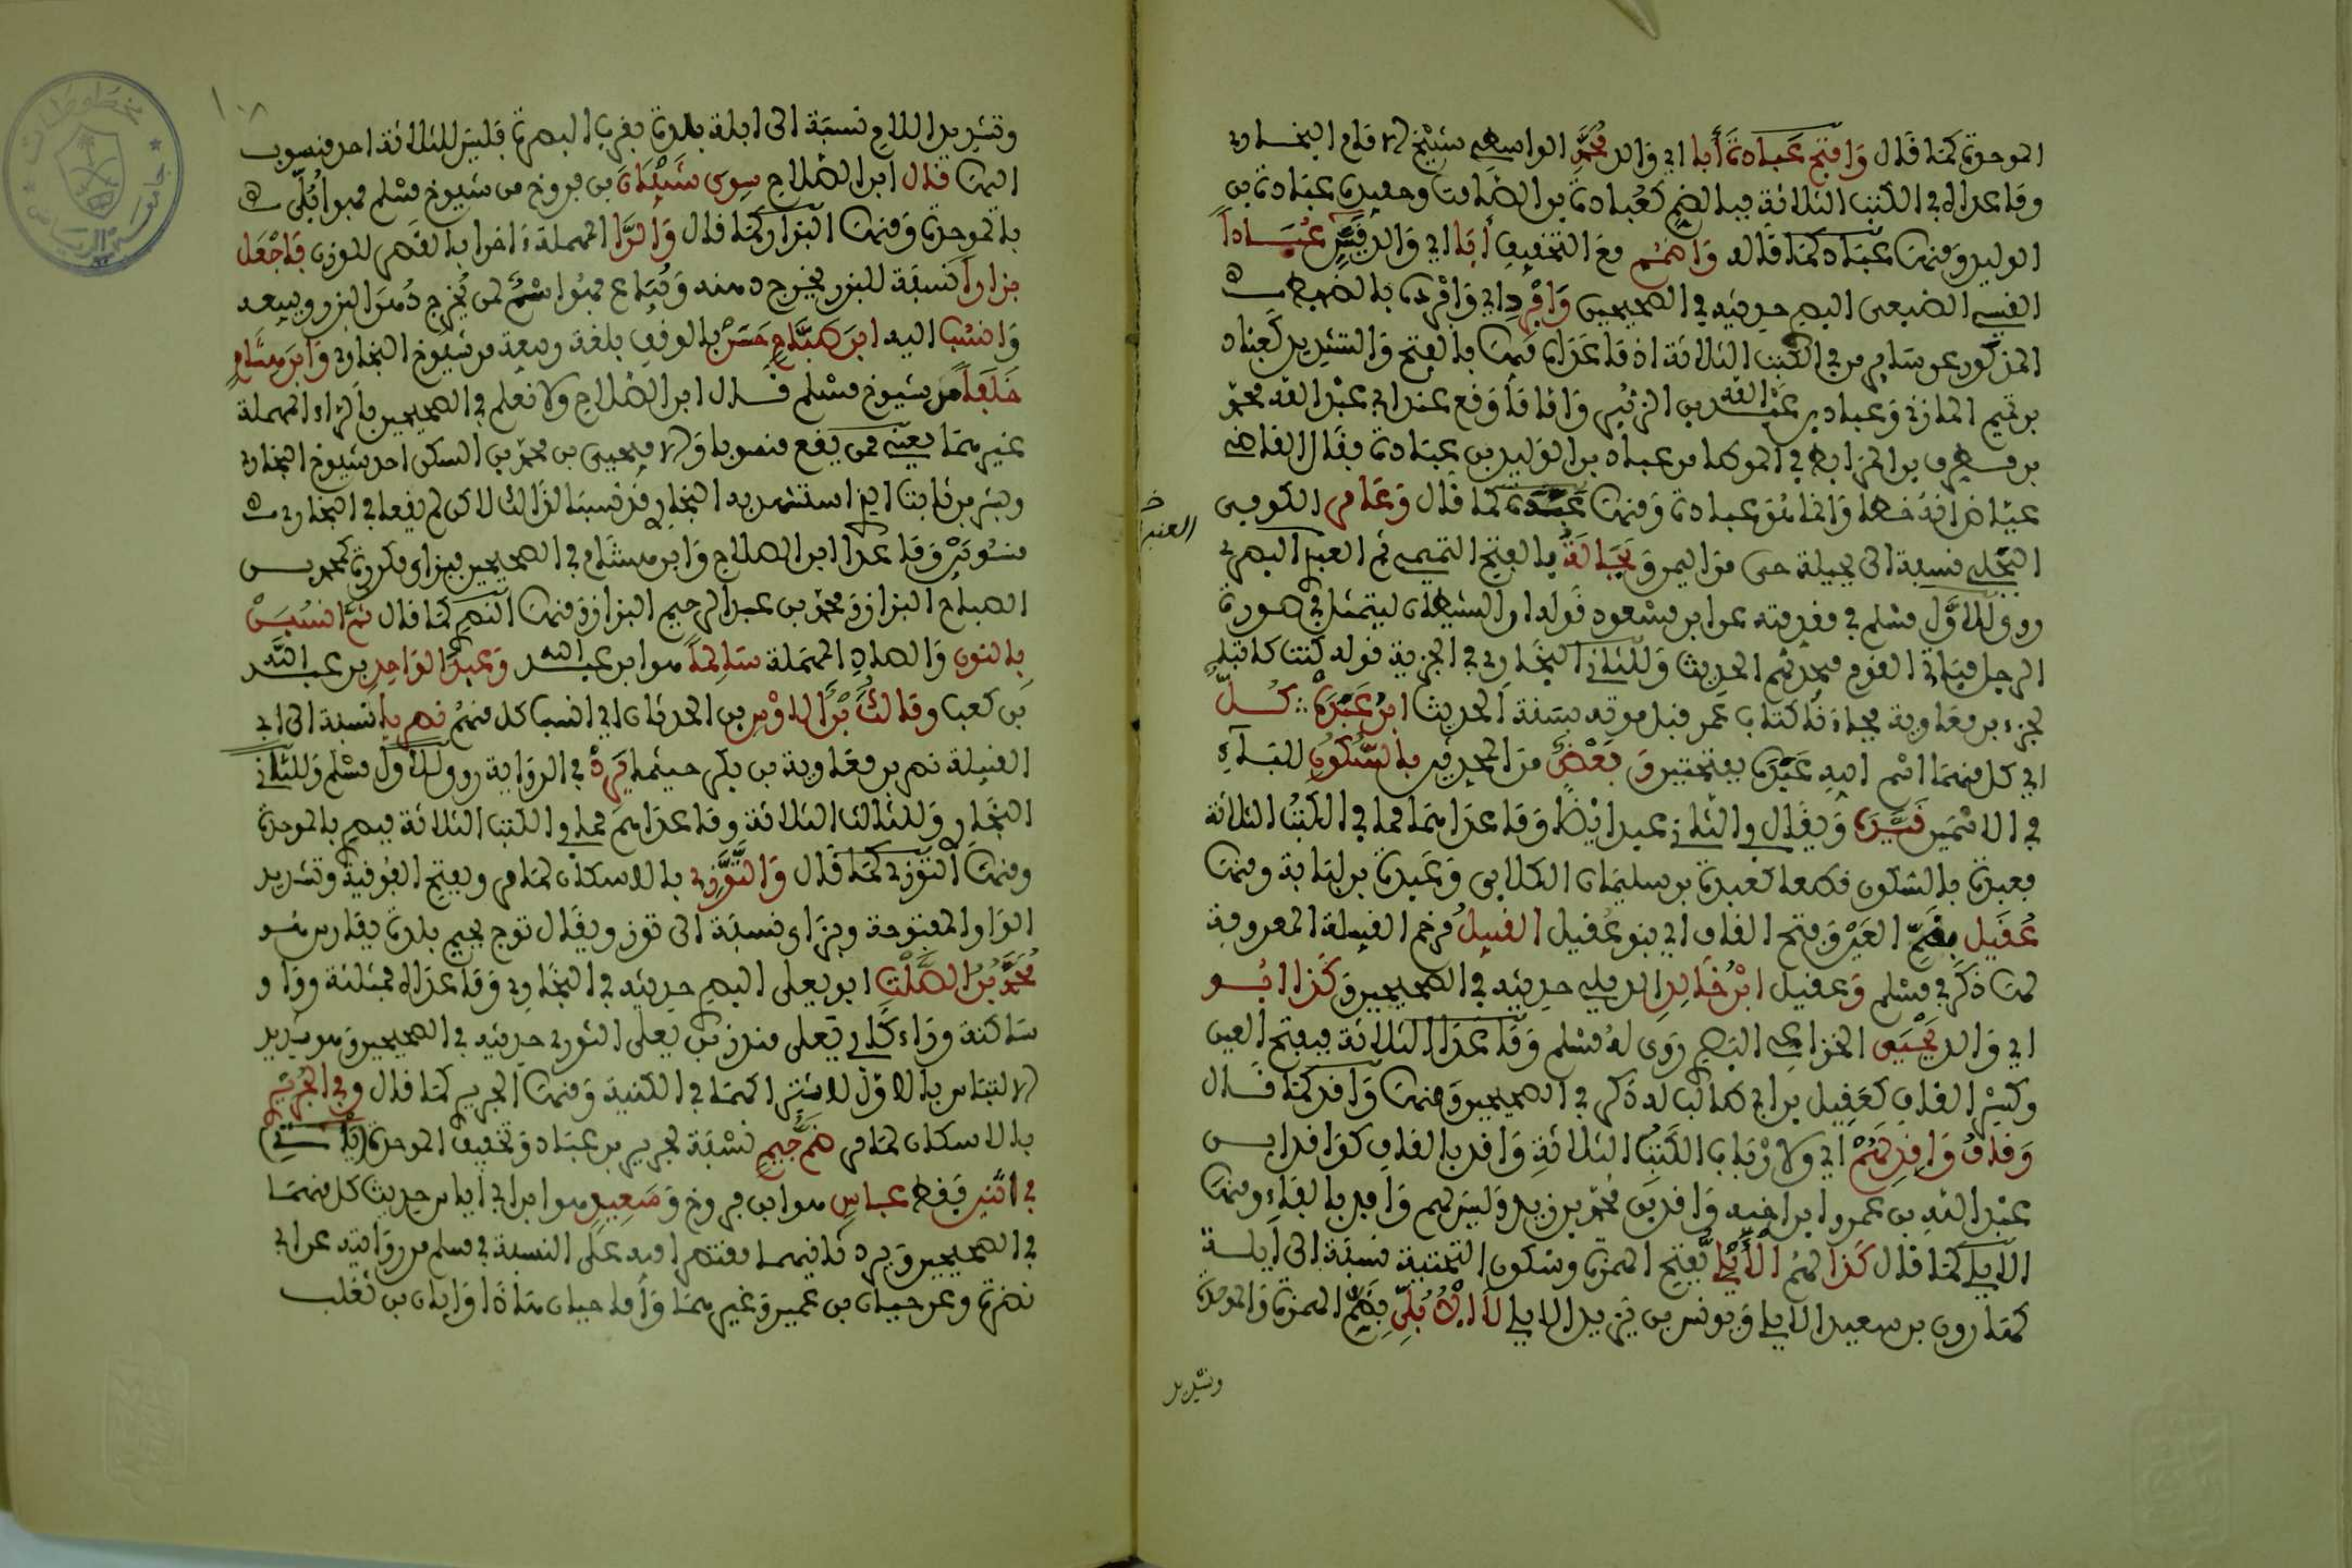 الموحدة كما قال وافتح عبادة أبا اي والد محمد الواسطي شيخ الامام البخاري
وما عداه في الكتب الثلاثة فبالضم كعبادة بن الصامت وحفيده عبادة بن
الوليد ومنها عباد كما قاله واضمم مع التخفيف أبا اي والد قيس عبادا
القيسي الضبعي البصر حديثه في الصحيحين وافرد اي وافرده بالضبط
المذكور عن سايرمن في الكتب الثلاثة اذ ما عداه فيها بالفتح والتشديد كعباد
بن تميم المازني وعباد بن عبد الله بن الزبير واما ما وقع عند ابي عبد الله محمد
بن مطرف بن المرابط في الموطا من عباد بن الوليد بن عبادة فقال القاضي
عياض انه خطا وانما هو عبادة ومنها عبدة كما قال وعامر الكوفي
البجلي نسبة الى بجيلة حي من اليمن وبجالة بالفتح التميمي ثم العنبر البصري
روى للاول مسلم في مقدمته عن ابن مسعود قوله ان الشيطان ليتمثل في صورة
الرجل فياتي القوم فيحدثهم الحديث وللثاني البخاري في الجزية قوله كنت كاتبا
لجزء بن معاوية فجاءنا كتاب عمر قبل موته بسنة الحديث ابن عبدة كل
اي كل منهما اسم ابيه عبدة بفتحتين وبعض من المحدثين بالسكون للباء
في الاسمين قيده ويقال في الثاني عبد ايضا وما عداهما مما في الكتب الثلاثة
فعبدة بالسكون فقط كعبدة بن سليمان الكلابي وعبدة بن لبابة ومنها
عقيل بضم العين وفتح القاف اي بنو عقيل القبيل مرخم القبيلة المعروفة
لها ذكر في مسلم وعقيل ابن خالد الايلي حديثه في الصحيحين وكذا ابو
اي والد يحيى الخزاعي البصر روى له مسلم وما عدا الثلاثة فبفتح العين
وكسر القاف كعقيل بن ابي طالب له ذكر في الصحيحين ومنها وافد كما قال
وقاف واقد لهم اي ولارباب الكتب الثلاثة واقد بالقاف كواقد ابن
عبد الله بن عمر وابن اخيه واقد بن محمد بن زيد وليس لهم وافد بالفاء ومنها
الايلي كما قال كذا لهم الأيلي بفتح الهمزة وسكون التحتية نسبة الى ايلة
كهارون بن سعيد الايلي ويونس بن يزيد الايلي لا الأبلي بضم الهمزة والموحدة
وتشديد
العنبر
١٠٨
وتشديد اللام نسبة الى ابلة بلدة بقرب البصرة فليس للثلاثة احد منسوب
اليها قال ابن الصلاح سوى شيبان بن فروخ من شيوخ مسلم فهو ابلي
بالموحدة ومنها البزار كما قال والرا المهملة اخرا بالقصر للوزن فاجعل
بزارا نسبة للبزر يخرج دهنه ويباع فهو اسم لمن يخرج دهن البزر ويبيعه
وانسب اليه ابن صباح حسن بالوقف بلغة ربيعة من شيوخ البخاري وابن هشام
خلفا من شيوخ مسلم قال ابن الصلاح ولا نعلم في الصحيحين بالراء المهملة
غيرهما يعني ممن يقع منسوبا والا فيحيى بن محمد بن السكن احد شيوخ البخاري
وبشر بن ثابت الذي استشهد به البخاري قد نسبا لذلك لاكن لم يقعا في البخاري
منسوبين وما عدا ابن الصلاح وابن هشام في الصحيحين فبزاي مكررة كمحمد بن
الصباح البزاز ومحمد بن عبد الرحيم البزاز ومنها النصر كما قال ثم انسبن
بالنون والصاد المهملة سالما هو ابن عبد الله وعبد الواحد بن عبد الله
بن كعب ومالك بن الاوس بن الحدثان اي انسب كل منهم نصريا نسبة الى ابي
القبيلة نصر بن معاوية بن بكر حيثما يرد في الرواية روى للاول مسلم وللثاني
البخاري وللثالث الثلاثة وما عداهم مما في الكتب الثلاثة فبصر بالموحدة
ومنها التوزي كما قال والتوزي بالاسكان لما مر وبفتح الفوقية وتشديد
الواو المفتوحة وبزاي نسبة الى توز ويقال توج بجيم بلدة بفارس هو
محمد بن الصلت ابو يعلى البصر حديثه في البخاري وما عداه فمثلثة وواو
ساكنة وراء كابي يعلى منذر بن يعلى الثوري حديثه في الصحيحين وهو شديد
الالتباس بالاول لاشتراكهما في الكنية ومنها الجرير كما قال وفي الجريري
بالاسكان لما مر ضم جيم نسبة لجرير بن عباد وتخفيف الموحدة (ياتي)
في اثنين فقط عباس هو ابن فروخ وسعيد هو ابن ابي اياس حديث كل منهما
في الصحيحين ويرد ثانيهما مقتصرا فيه على النسبة في مسلم من روايته عن ابي
نضرة وعن حيان بن عمير وغيرهما واما حيان هاذا وابان بن تغلب